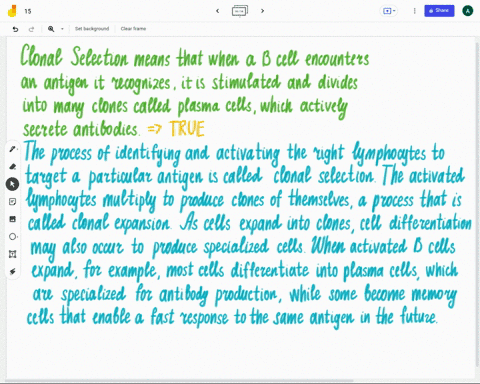 15
Set background
Clear frame
Share
A
Clonal Selection means that when a B cell encounters
an antigen it recognizes, it is stimulated and divides
into many clones called plasma cells, which actively
secrete antibodies. => TRUE
The process of identifying and activating the right lymphocytes to
target a particular antigen is called clonal selection. The activated
lymphocytes multiply to produce clones of themselves, a process that is
called clonal expansion. As cells expand into clones, cell differentiation
may also occur to produce specialized cells. When activated B cells
expand, for example, most cells differentiate into plasma cells, which
are specialized for antibody production, while some become memory
cells that enable a fast response to the same antigen in the future.